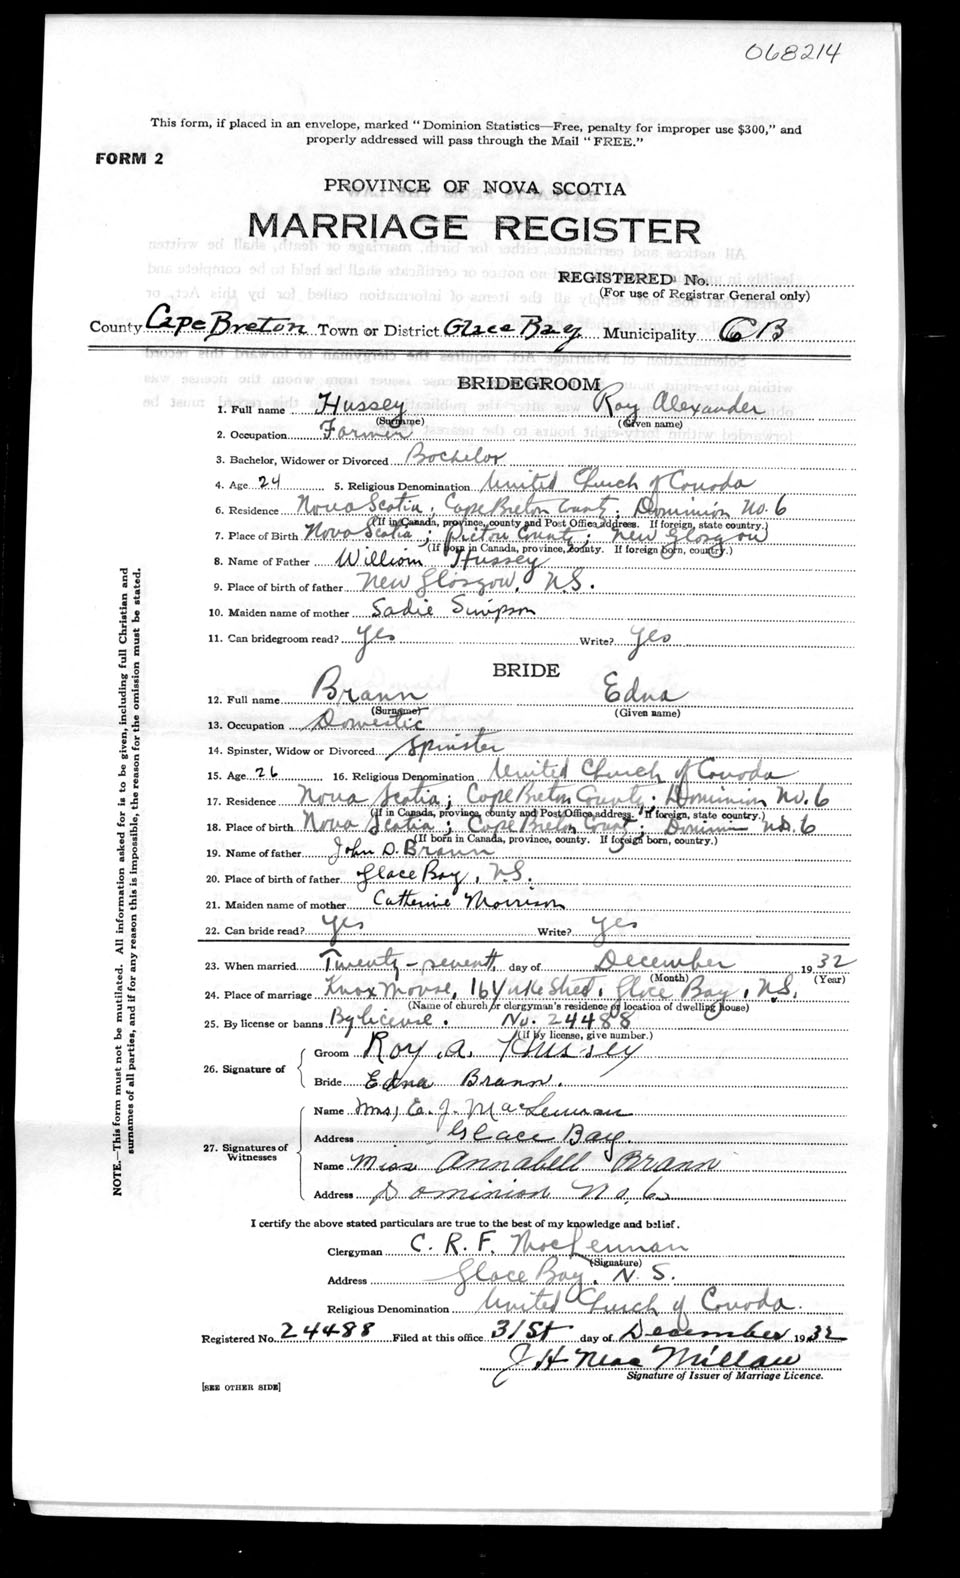 068214
This form, if placed in an envelope, marked "Dominion Statistics—Free, penalty for improper use $300," and
properly addressed will pass through the Mail "FREE."
FORM 2
PROVINCE OF NOVA SCOTIA
MARRIAGE REGISTER
REGISTERED No.
(For use of Registrar General only)
County Cape Breton Town or District Glace Bay Municipality CB
BRIDEGROOM
1. Full name Hussey Roy Alexander
(Surname) (Given name)
2. Occupation Farmer
3. Bachelor, Widower or Divorced Bachelor
4. Age 24 5. Religious Denomination United Church of Canada
6. Residence Nova Scotia; Cape Breton County; Dominion No. 6
(If in Canada, province, county and Post Office address. If foreign, state country.)
7. Place of Birth Nova Scotia; Pictou County; New Glasgow
(If born in Canada, province, county. If foreign born, country.)
8. Name of Father William Hussey
9. Place of birth of father New Glasgow, N.S.
10. Maiden name of mother Sadie Simpson
11. Can bridegroom read? Yes Write? Yes
BRIDE
12. Full name Brann Edna
(Surname) (Given name)
13. Occupation Domestic
14. Spinster, Widow or Divorced Spinster
15. Age 26 16. Religious Denomination United Church of Canada
17. Residence Nova Scotia; Cape Breton County; Dominion No. 6
(If in Canada, province, county and Post Office address. If foreign, state country.)
18. Place of birth Nova Scotia; Cape Breton County; Dominion No. 6
(If born in Canada, province, county. If foreign born, country.)
19. Name of father John D. Brann
20. Place of birth of father Glace Bay, N.S.
21. Maiden name of mother Catherine Morrison
22. Can bride read? Yes Write? Yes
23. When married Twenty-seventh day of December 1932
(Month) (Year)
24. Place of marriage Knox Manse, 16 Street, Glace Bay, N.S.
(Name of church or clergyman's residence or location of dwelling house)
25. By license or banns By license. No. 24488
(If by license, give number.)
26. Signature of
Groom Roy A. Hussey
Bride Edna Brann.
27. Signatures of Witnesses
Name Mrs, E. J. MacLennan
Address Glace Bay
Name Miss Annabell Brann
Address Dominion No. 6
I certify the above stated particulars are true to the best of my knowledge and belief.
Clergyman C. R. F. MacLennan
(Signature)
Address Glace Bay, N. S.
Religious Denomination United Church of Canada.
Registered No. 24488 Filed at this office 31st day of December 1932
J H MacMillan
Signature of Issuer of Marriage Licence.
[SEE OTHER SIDE]
NOTE.—This form must not be mutilated. All information asked for is to be given, including full Christian and
surnames of all parties, and if for any reason this is impossible, the reason for the omission must be stated.